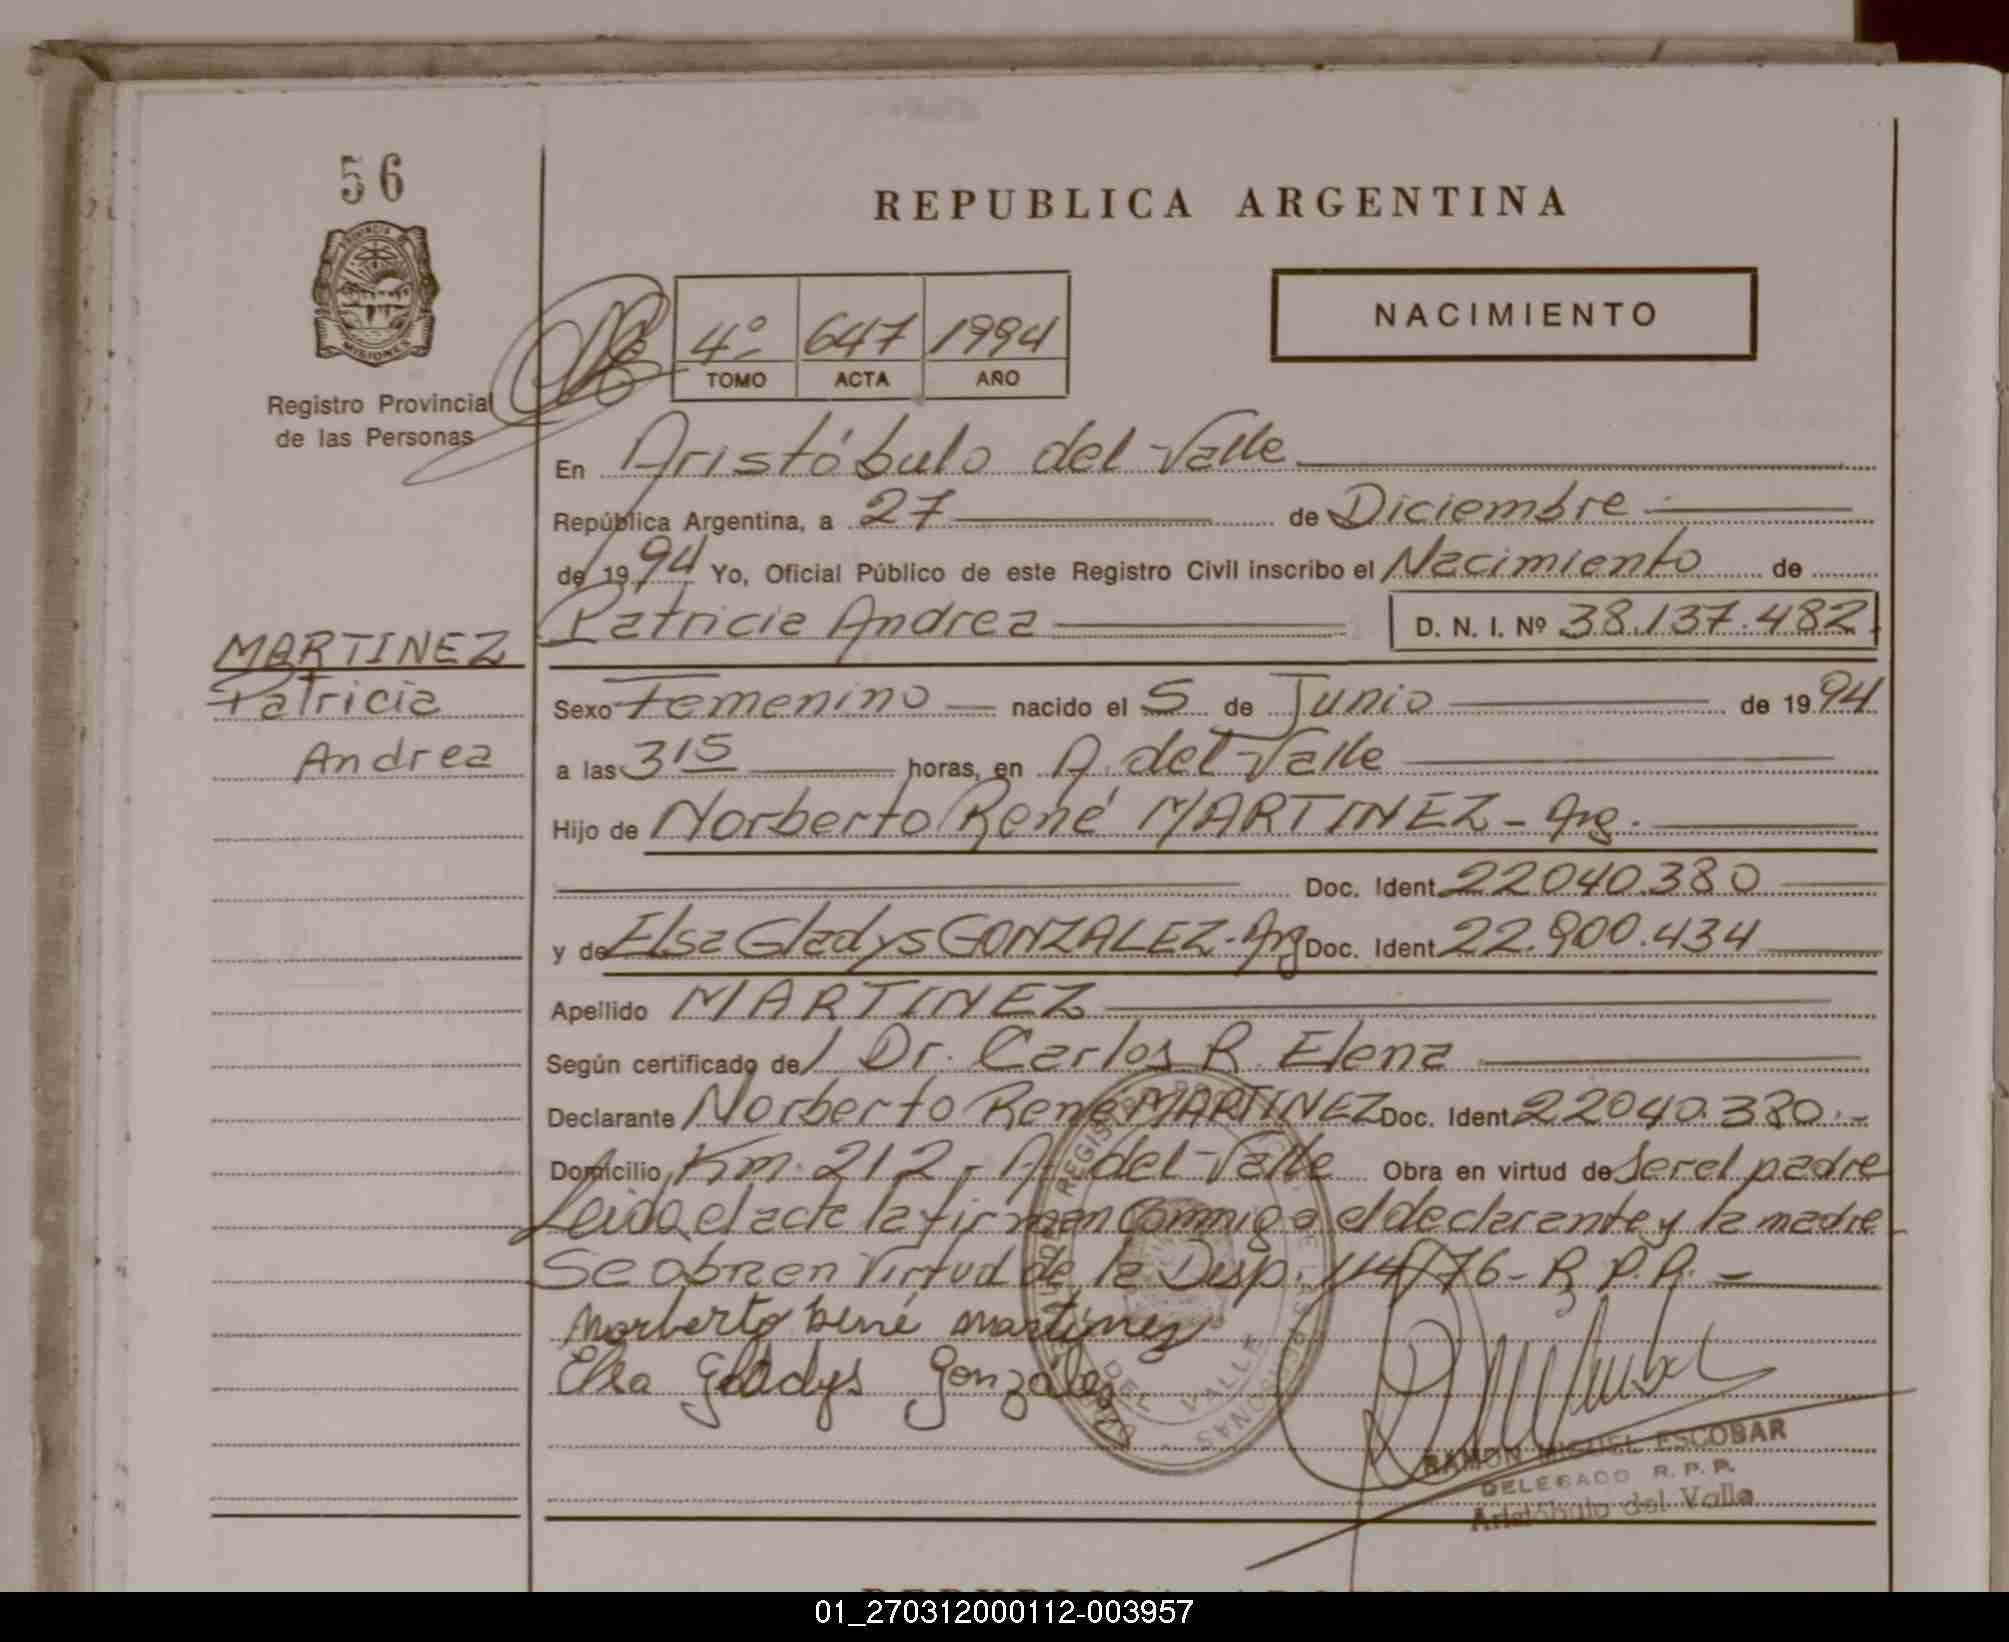 56
REPUBLICA ARGENTINA
PROVINCIA
MISIONES
NACIMIENTO
4º 647 1994
TOMO ACTA AÑO
Registro Provincial
de las Personas
En Aristóbulo del Valle
República Argentina, a 27 de Diciembre
de 1994 Yo, Oficial Público de este Registro Civil inscribo el Nacimiento de
Patricia Andrea D. N. I. Nº 38.137.482
MARTINEZ
Patricia
Andrea
Sexo Femenino nacido el 5 de Junio de 1994
a las 3 15 horas, en A. del Valle
Hijo de Norberto René MARTINEZ - Arg.
Doc. Ident. 22040.380
y de Elsa Gladys GONZALEZ - Arg Doc. Ident. 22.900.434
Apellido MARTINEZ
Según certificado de Dr. Carlos R. Elena
Declarante Norberto René MARTINEZ Doc. Ident. 22040.380.-
Domicilio Km. 212 - A. del Valle Obra en virtud de ser el padre
Leida el acta la firman conmigo el declarante y la madre
Se obra en virtud de la Disp. 114/76 - R.P.P. -
Norberto René Martinez
Elsa Gladys González
DEL VALLE
RAMON MIGUEL ESCOBAR
DELEGADO R. P. P.
Aristóbulo del Valle
01_270312000112-003957